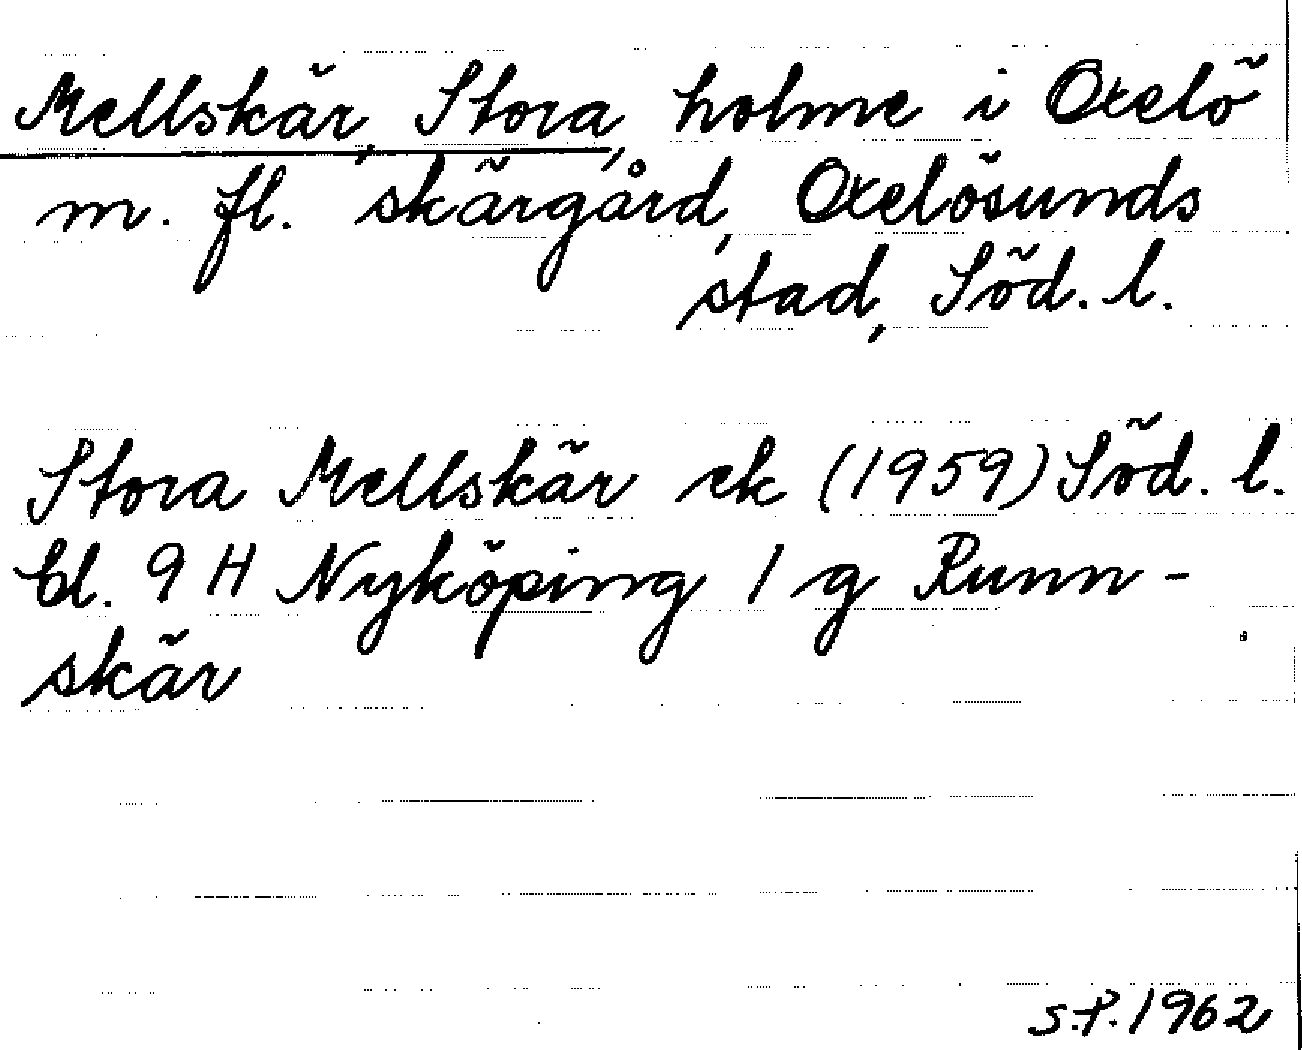 Mellskär, Stora, holme i Oxelö
m. fl. skärgård, Oxelösunds
stad, Söd. l.
Stora Mellskär ek (1959) Söd. l.
bl. 9 H Nyköping 1 g Runn-
skär
S.P. 1962